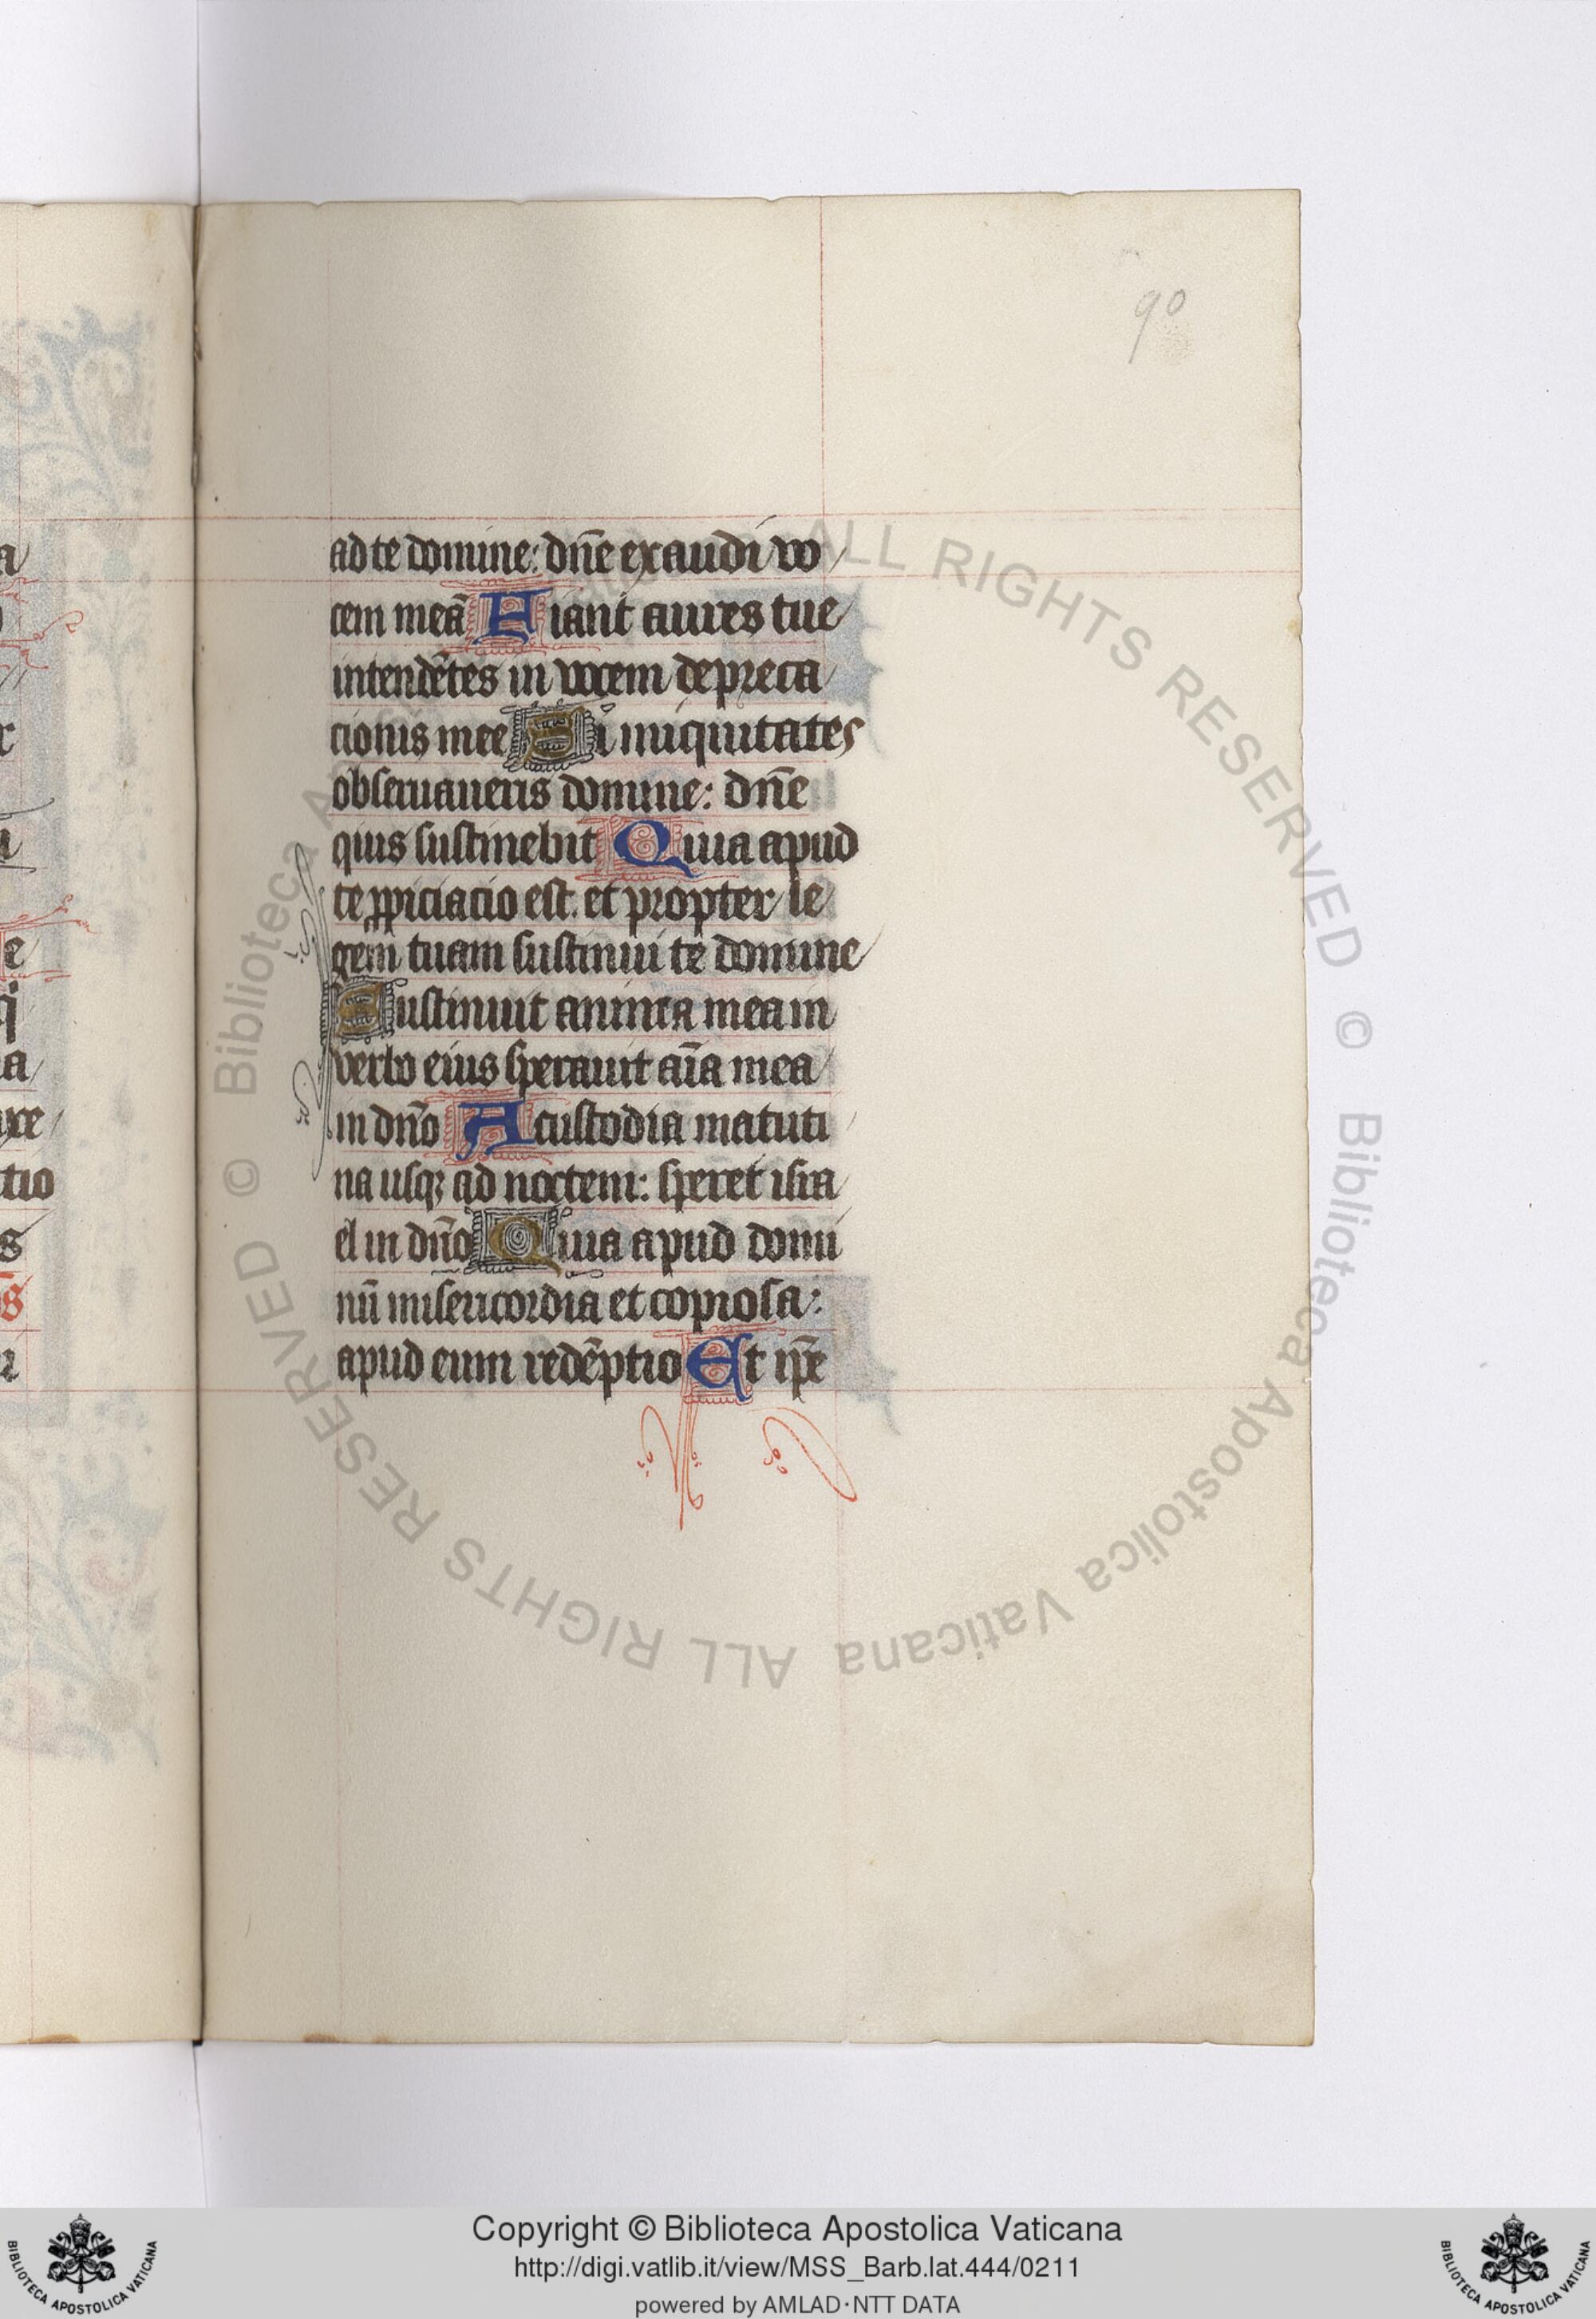 90
ad te domine: dn̄e exaudi vo
cem meā Fiant aures tue
intendētes in vocem depreca
cionis mee Si iniquitates
obseruaueris domine: dn̄e
quis sustinebit Quia apud
te ꝓpiciacio est. et propter le
gem tuam sustinui te domine
Sustinuit anima mea in
verbo eius sperauit aīa mea
in dn̄o A custodia matuti
na usqꝫ ad noctem: speret isra
el in dn̄o Quia apud domi
nū misericordia et copiosa:
apud eum redēptio Et ip̄e
ALL RIGHTS RESERVED © Biblioteca Apostolica Vaticana
ALL RIGHTS RESERVED © Biblioteca Apostolica Vaticana
Copyright © Biblioteca Apostolica Vaticana
http://digi.vatlib.it/view/MSS_Barb.lat.444/0211
powered by AMLAD·NTT DATA
BIBLIOTECA APOSTOLICA VATICANA
BIBLIOTECA APOSTOLICA VATICANA